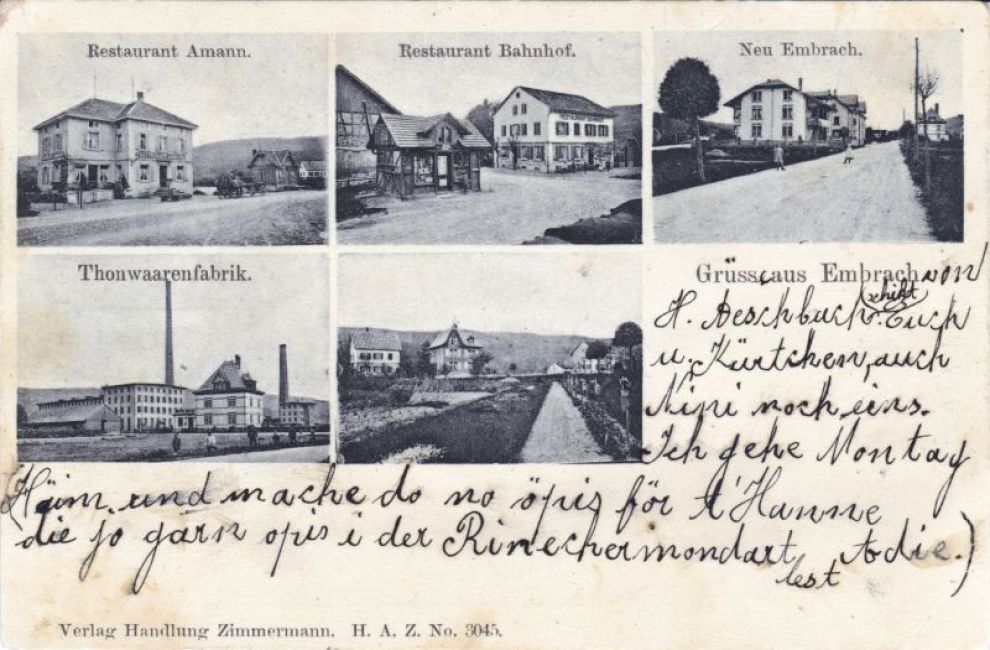 Restaurant Amann.
Restaurant Bahnhof.
RESTAURANT BAHNHOF
Neu Embrach.
Thonwaarenfabrik.
Grüsse aus Embrach von
schikt
H. Aeschbach. Euch
u. Kürtchen, auch
Nini noch eins.
Ich gehe Montag
(Häim und mache do no öpis för d'Hanne
die jo gärn opis i der Rinechermondart
lest Adie.)
Verlag Handlung Zimmermann. H. A. Z. No. 3045.